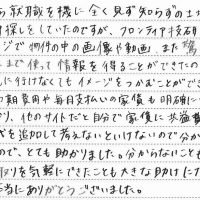 ら就職を機に全く見ず知らずの土地
探しをしていたのですが、フロンティア技研
ジで物件の中の画像や動画、また
まで使って情報を得ることができたの
に行けなくてもイメージをつかむことができ
初期費用や毎月支払いの家賃も明確に
り、他のサイトだと自分で家賃に共益費
どを追加して考えないといけないので分か
ので、とても助かりました。分からないことも
取りを気軽にできたことも大きな助けに
当にありがとうございました。